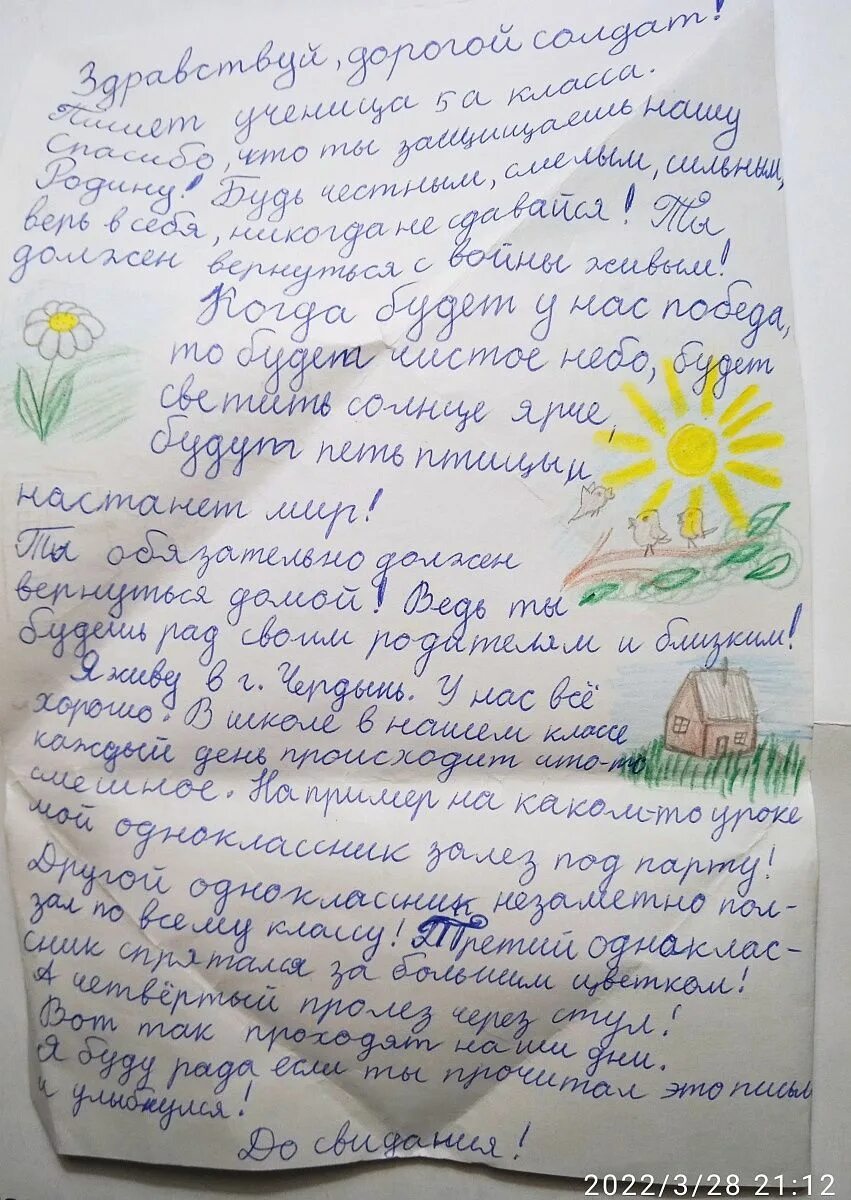 Здравствуй, дорогой солдат!
Пишет ученица 5а класса.
Спасибо, что ты защищаешь нашу
Родину! Будь честным, смелым, сильным,
верь в себя, никогда не сдавайся! Ты
должен вернуться с войны живым!
Когда будет у нас победа,
то будет чистое небо, будет
светить солнце ярче,
будут петь птицы и
настанет мир!
Ты обязательно должен
вернуться домой! Ведь ты
будешь рад своим родителям и близким!
Я живу в г. Чердынь. У нас всё
хорошо. В школе в нашем классе
каждый день происходит что-то
смешное. Например на каком-то уроке
мой одноклассник залез под парту!
Другой одноклассник незаметно пол-
зал по всему классу! Третий одноклас-
сник спрятался за большим цветком!
А четвёртый пролез через стул!
Вот так проходят наши дни.
Я буду рада если ты прочитал это письм
и улыбнулся!
До свидания!
2022/3/28 21:12